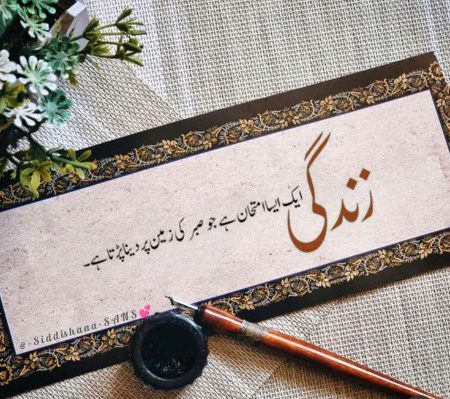 زندگی
ایک ایسا امتحان ہے جو صبر کی زمین پر دینا پڑتا ہے۔
@-Siddishaaa-SANS💕